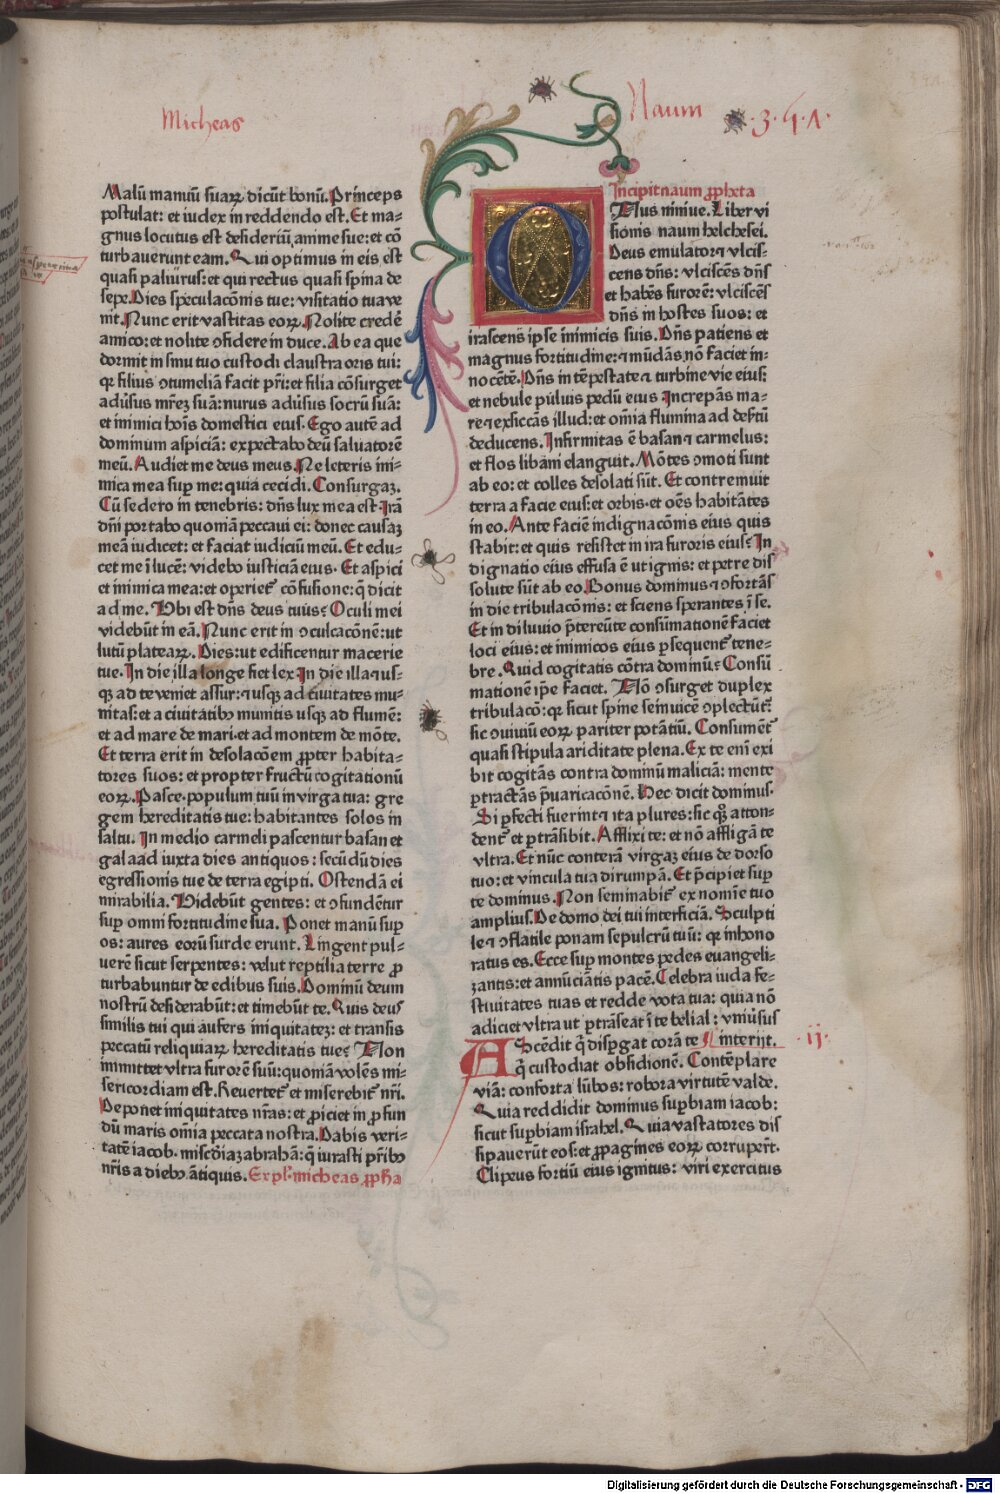 Micheas
Naum
·3·4·1·
Malū manuū suaꝝ dicūt bonū. Princeps
postulat: et iudex in reddendo est. Et ma-
gnus locutus est desideriū anime sue: et cō
turbauerunt eam. Qui optimus in eis est
quasi paliurus: et qui rectus quasi spina de
sepe. Dies speculacōnis tue: visitatio tua ve
nit. Nunc erit vastitas eoꝝ. Nolite credē
amico: et nolite ↄfidere in duce. Ab ea que
dormit in sinu tuo custodi claustra oris tui:
qꝛ filius ↄtumeliā facit pr̄i: et filia cōsurget
adūsus mr̄eꝫ suā: nurus adūsus socrū suā:
et inimici hoīs domestici eius. Ego autē ad
dominum aspiciā: expectabo deū saluatorē
meū. Audiet me deus meus. Ne leteris ini-
mica mea suꝑ me: quia cecidi. Consurgaꝫ.
Cū sedero in tenebris: dn̄s lux mea est. Irā
dn̄i portabo quoniā peccaui ei: donec causaꝫ
meā iudicet: et faciat iudiciū meū. Et edu-
cet me ī lucē: videbo iusticiā eius. Et aspici
et inimica mea: et operiet᷑ cōfusione: q̄ dicit
ad me. Vbi est dn̄s deus tuus? Oculi mei
videbūt in eā. Nunc erit in ↄculcacōnē: ut
lutū plateaꝝ. Dies: ut edificentur macerie
tue. In die illa longe fiet lex. In die illa ⁊ us-
qꝫ ad te veniet assur: ⁊ usqꝫ ad ciuitates mu-
nitas: et a ciuitatibꝰ munitis usqꝫ ad flumē:
et ad mare de mari. et ad montem de mōte.
Et terra erit in desolacōem ꝓpter habita-
tores suos: et propter fructū cogitationū
eoꝝ. Pasce. populum tuū in virga tua: gre
gem hereditatis tue: habitantes solos in
saltu. In medio carmeli pascentur basan et
galaad iuxta dies antiquos: secūdū dies
egressionis tue de terra egipti. Ostendā ei
mirabilia. Videbūt gentes: et ↄfundētur
suꝑ omni fortitudine sua. Ponet manū suꝑ
os: aures eorū surde erunt. Lingent pul-
uerē sicut serpentes: velut reptilia terre ꝓ
turbabuntur de edibus suis. Dominū deum
nostrū desiderabūt: et timebūt te. Quis deus
similis tui qui aufers iniquitateꝫ: et transis
peccatū reliquiaꝝ hereditatis tue? Non
inmittet vltra furorē suū: quoniā volēs mi-
sericordiam est. Reuertet᷑ et miserebit᷑ nr̄i.
Deponet iniquitates nr̄as: et ꝓiciet in ꝓfun
dū maris om̄ia peccata nostra. Dabis veri-
tatē iacob. misc̄diaꝫ abrahā: q̄ iurasti pr̄ibꝰ
nr̄is a diebꝰ ātiquis. Expl. micheas ꝓpħa
Incipit naum ꝓpheta
Onus niniue. Liber vi
sionis naum helchesei.
Deus emulator ⁊ vlcis-
cens dn̄s: vlciscēs dn̄s
et habēs furorē: vlciscēs
dn̄s in hostes suos: et
irascens ipse inimicis suis. Dn̄s patiens et
magnus fortitudine: ⁊ mūdās nō faciet in-
nocētē. Dn̄s in tēpestate ⁊ turbine vie eius:
et nebule puluis pedū eius Increpās ma-
re ⁊ exsiccās illud: et om̄ia flumina ad deẜtū
deducens. Infirmitas ē basan ⁊ carmelus:
et flos libani elanguit. Mōtes ↄmoti sunt
ab eo: et colles desolati sūt. Et contremuit
terra a facie eius: et orbis. et oēs habitātes
in eo. Ante faciē indignacōnis eius quis
stabit: et quis resistet in ira furoris eius? In
dignatio eius effusa ē ut ignis: et petre dis
solute sūt ab eo. Bonus dominus ⁊ ↄfortās
in die tribulacōnis: et sciens sperantes ī se.
Et in diluuio p̄tereūte consūmationē faciet
loci eius: et inimicos eius ꝑsequent᷑ tene-
bre. Quid cogitatis cōtra dominū? Consū
mationē ip̄e faciet. Nō ↄsurget duplex
tribulacō: qꝛ sicut spine se inuicē ↄplectūt᷑:
sic ↄuiuiū eoꝝ pariter potātiū. Consument᷑
quasi stipula ariditate plena. Ex te eni exi
bit cogitās contra dominū maliciā: mente
ꝑtractās p̄uaricacōnē. Hec dicit dominus.
Si ꝑfecti fuerint ⁊ ita plures: sic qꝫ atton-
dent᷑ et ꝑtrāsibit. Afflixi te: et nō affligā te
vltra. Et nūc conterā virgaꝫ eius de dorso
tuo: et vincula tua dirumpā. Et p̄cipiet suꝑ
te dominus. Non seminabit᷑ ex nomīe tuo
amplius. De domo dei tui interficiā. Sculpti
le ⁊ ↄflatile ponam sepulcrū tuū: qꝛ inhono
ratus es. Ecce suꝑ montes pedes euangeli-
zantis: et annūciātis pacē. Celebra iuda fe-
stiuitates tuas et redde vota tua: quia nō
adiciet vltra ut ꝑtrāseat ī te belial: vniūsus
interijt. II
·ij·
AScēdit q̄ disꝑgat corā te
q̄ custodiat obsidionē. Contēplare
viā: conforta lūbos: robora virtutē valde.
Quia reddidit dominus suꝑbiam iacob:
sicut suꝑbiam israhel. Quia vastatores dis
sipauerūt eos: et ꝓpagines eoꝝ corruperūt.
Clipeus fortiū eius ignitus: viri exercitus
Digitalisierung gefördert durch die Deutsche Forschungsgemeinschaft - DFG